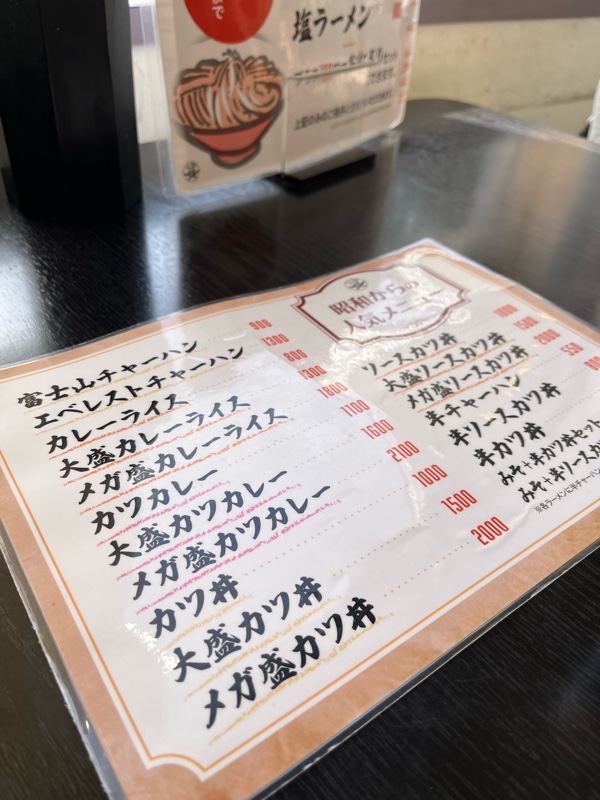 塩ラーメン
昭和からの
人気メニュー
富士山チャーハン 900
エベレストチャーハン 1300
カレーライス 800
大盛カレーライス 1300
メガ盛カレーライス 1800
カツカレー 1100
大盛カツカレー 1600
メガ盛カツカレー 2100
カツ丼 1000
大盛カツ丼 1500
メガ盛カツ丼 2000
ソースカツ丼 1000
大盛ソースカツ丼 1500
メガ盛ソースカツ丼 2000
半チャーハン 550
半ソースカツ丼
半カツ丼
みそ+半カツ丼セット
みそ+半ソースカ
※各ラーメンに半チャーハン